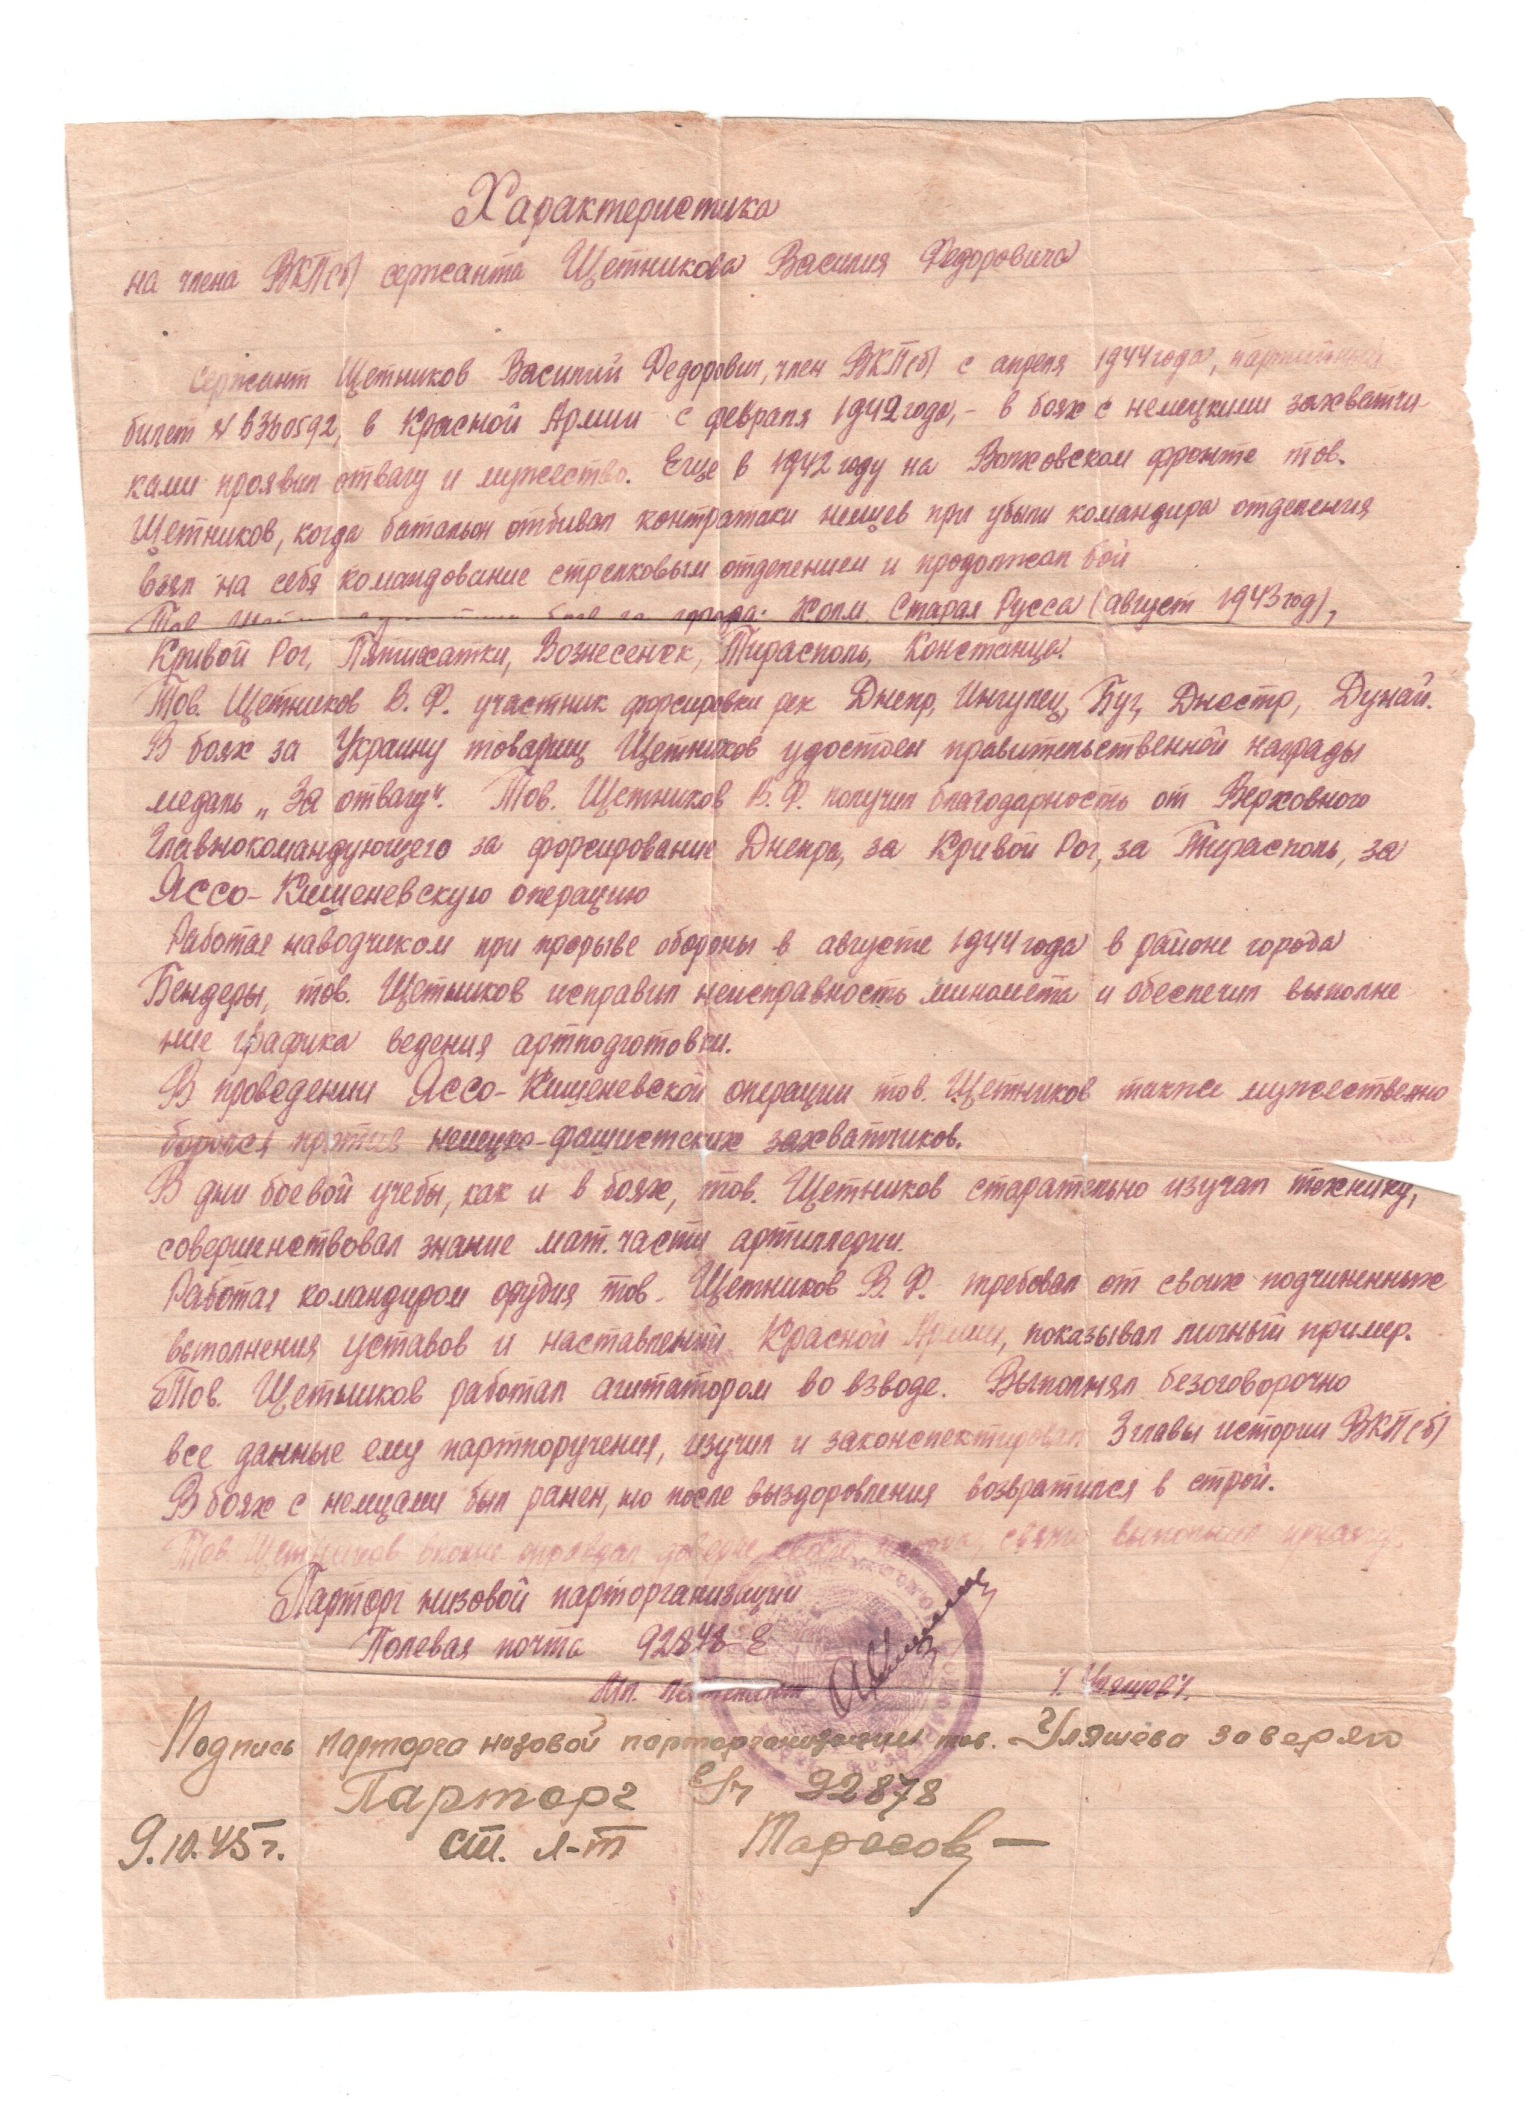 Характеристика
на члена ВКП(б) сержанта Щетникова Василия Федоровича
Сержант Щетников Василий Федорович, член ВКП(б) с апреля 1944 года, партийный
билет № 6360592, в Красной Армии с февраля 1942 года, - в боях с немецкими захватчи-
ками проявил отвагу и мужество. Еще в 1942 году на Волховском фронте тов.
Щетников, когда батальон отбивал контратаки немцев при убыли командира отделения
взял на себя командование стрелковым отделением и продолжал бой
Тов. боев за города: Холм Старая Русса (август 1943 год),
Кривой Рог, Пятихатки, Вознесенск, Тирасполь, Констанца.
Тов. Щетников В. Ф. участник форсировки рек Днепр, Ингулец, Буг, Днестр, Дунай.
В боях за Украину товарищ Щетников удостоен правительственной награды
медаль „За отвагу". Тов. Щетников В. Ф. получил благодарность от Верховного
Главнокомандующего за форсирование Днепра, за Кривой Рог, за Тирасполь, за
Яссо-Кишеневскую операцию
Работая наводчиком при прорыве обороны в августе 1944 года в районе города
Бендеры, тов. Щетников исправил неисправность миномета и обеспечил выполне-
ние графика ведения артподготовки.
В проведении Яссо-Кишеневской операции тов. Щетников также мужественно
боролся против немецко-фашистских захватчиков.
В дни боевой учебы, как и в боях, тов. Щетников старательно изучал технику,
совершенствовал знание мат. части артиллерии.
Работая командиром орудия тов. Щетников В. Ф. требовал от своих подчиненных
выполнения уставов и наставлений Красной Армии, показывал личный пример.
Тов. Щетников работал агитатором во взводе. Выполнял безоговорочно
все данные ему партпоручения, изучил и законспектировал 3 главы истории ВКП(б)
В боях с немцами был ранен, но после выздоровления возвратился в строй.
Тов. Щетников вполне оправдал доверие своего народа, свято выполнил присягу.
Парторг низовой парторганизации
Полевая почта 92878 Е
Мл. лейтенант /Уляшев/.
Подпись парторга низовой парторганизации тов. Уляшева заверяю
Парторг в/ч 92878
9.10.45 г. ст. л-т Тарасов